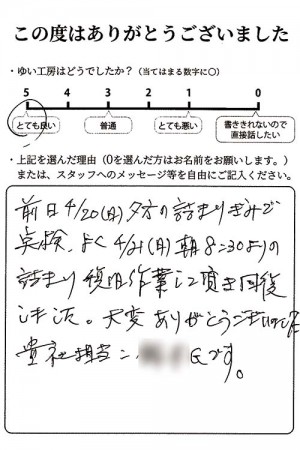 この度はありがとうございました
・ゆい工房はどうでしたか？（当てはまる数字に○）
5 4 3 2 1 0
とても良い 普通 とても悪い 書ききれないので直接話したい
・上記を選んだ理由（0を選んだ方はお名前をお願いします。）
または、スタッフへのメッセージ等を自由にご記入ください。
前日4/20(日)夕方の詰まりぎみで
点検、よく4/21(月)朝8:30よりの
詰まり復旧作業して頂き回復
しました。大変ありがとうございました
貴社担当:氏です。